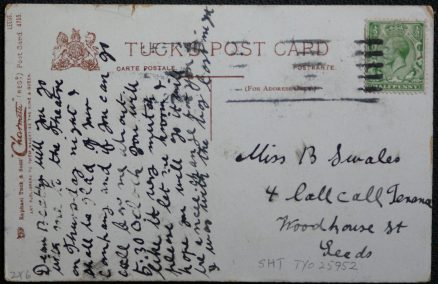 TUCK'S POST CARD
CARTE POSTALE
POSTKARTE
(FOR ADDRESS ONLY)
HALFPENNY
Raphael Tuck & Sons' "Charmette" (REGD.) Post Card 4795
Dear B will you
me to the Theatre
on Thursday night I
shall be glad of your
company and if you can go
call for me about
5.30 O clock you will
like it very much
please let me know I
hope you will go it will
be a nice
I was with the
Miss B Swales
4 Callcall Terrace
Woodhouse St
Leeds
SHT TYO 25952
2x6